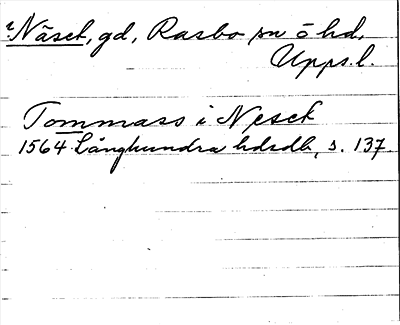 Näset, gd, Rasbo sn o hd,
Upps. l.
Tommass i Neset
1564 Långhundra hdrdb, s. 137.